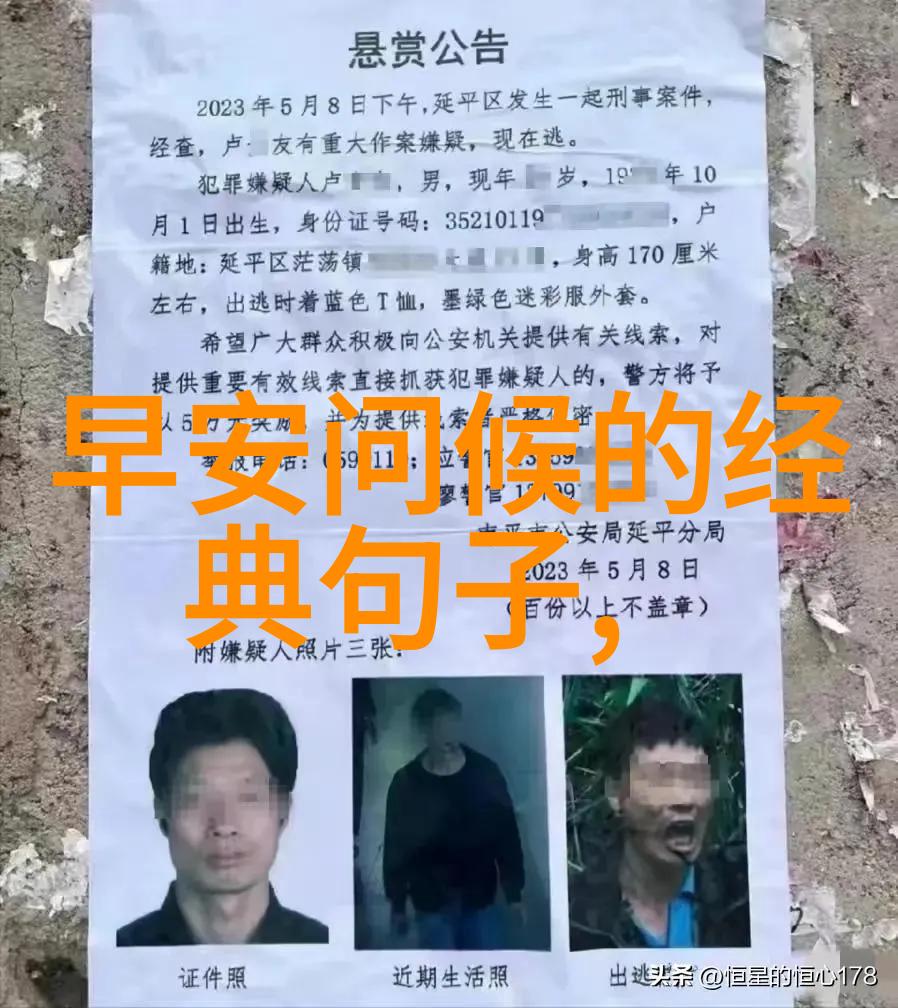 悬赏公告
2023年5月8日下午,延平区发生一起刑事案件,
经查,卢 友有重大作案嫌疑,现在逃。
犯罪嫌疑人卢 ,男,现年 岁,19 年10
月1日出生,身份证号码:35210119 ,户
籍地:延平区茫荡镇 ,身高170厘米
左右,出逃时着蓝色T恤,墨绿色迷彩服外套。
希望广大群众积极向公安机关提供有关线索,对
提供重要有效线索直接抓获犯罪嫌疑人的,警方将予
以5万元奖励,并为提供线索者严格保密
早安问候的经
典句子,
南平市公安局延平分局
2023年5月8日
(百份以上不盖章)
附嫌疑人照片三张:
证件照
近期生活照
出逃
头条 @恒星的恒心178